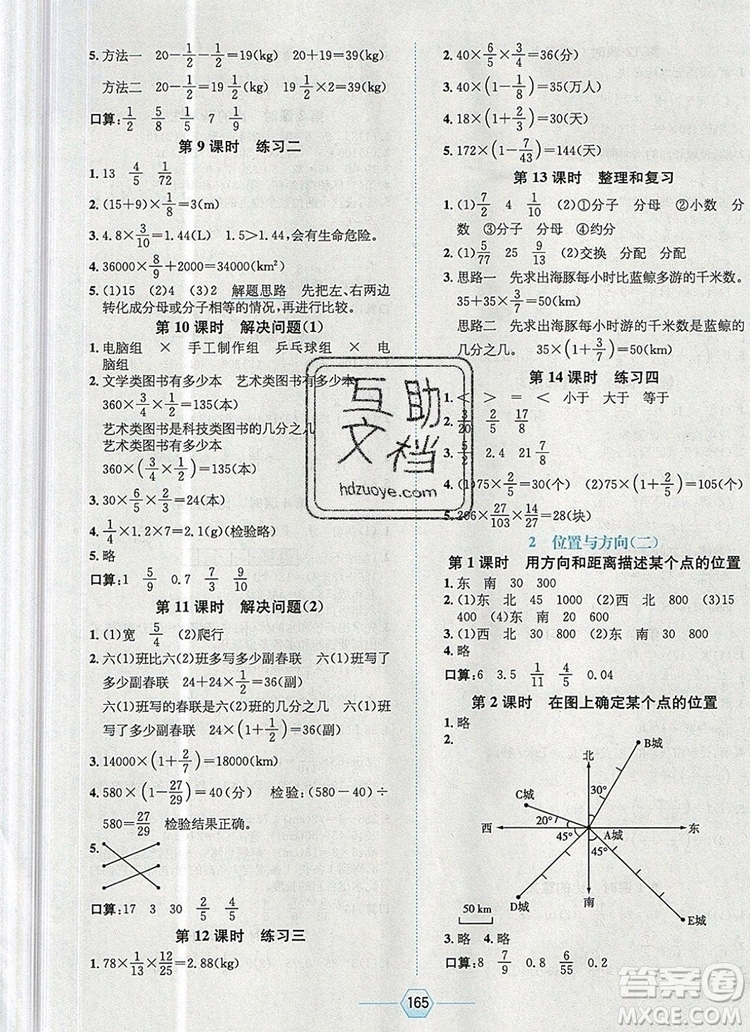 5. 方法一 20-1/2-1/2=19(kg) 20+19=39(kg)
方法二 20-1/2=19 1/2(kg) 19 1/2×2=39(kg)
口算: 1/2 5/8 1/5 7 1/9
第 9 课时 练习二
1. 13 4/5 1/72
2. (15+9)×1/8=3(m)
3. 4.8×3/10=1.44(L) 1.5>1.44,会有生命危险。
4. 36000×8/9+2000=34000(km²)
5. (1)15 (2)4 (3)2 解题思路 先把左、右两边
转化成分母或分子相等的情况,再进行比较。
第 10 课时 解决问题(1)
1. 电脑组 × 手工制作组 乒乓球组 × 电
脑组
2. 文学类图书有多少本 艺术类图书有多少本
360×3/4×1/2=135(本)
艺术类图书是科技类图书的几分之几
艺术类图书有多少本
360×(3/4×1/2)=135(本)
3. 30×4/5×=24(本)
4. 1/4×1/7×2=2.1(g)(检验略)
5. 略
口算: 1/6 1/3 0.7 7/9
第 11 课时 解决问题(2)
1. (1)宽 5/4 (2)爬行
2. 六(1)班比六(2)班多写多少副春联 六(1)班写了
多少副春联 24+24×1/2=36(副)
六(1)班写的春联是六(2)班的几分之几
六(1)班写了多少副春联 24×(1+1/2)=36(副)
3. 14000×(1+2/7)=18000(km)
4. 580×(1-27/29)=40(分) 检验:(580-40)÷
580=27/29 检验结果正确。
5.
口算: 17 3 30 2/5 4/5
第 12 课时 练习三
1. 78×4/13×12/25=2.88(kg)
2. 40×6/5×3/4=36(分)
3. 40×(1-1/8)=35(万人)
4. 18×(1+2/3)=30(天)
5. 172×(1-7/43)=144(天)
第 13 课时 整理和复习
1. (1)7/2 4 4/9 (2)①分子 分母 ②小数 分
数 ③约分
2. (1)5/77 25 9/10 (2)交换 分配 分配
3. 思路一 先求出海豚每小时比蓝鲸多游的千米数。
35+35×3/7=50(千米)
思路二 先求出海豚每小时游的千米数是蓝鲸的
几分之几。 35×(1+3/7)=50(千米)
第 14 课时 练习四
1. < > = < 小于 大于 等于
2. 3/20 2/5 17/8
3. 5/2 13 21 7/9
4. (1)75×2/5=30(个) (2)75×(1-3/5)=30(个)
5. 206×27/103×14/27=28(块)
2 位置与方向(二)
第 1 课时 用方向和距离描述某个点的位置
1. 东 南 30 300
2. (1)东 北 45 1000 (2)西 北 30 800 (3)15
400 (4)东 南 20 600
3. (1)西 北 30 2000 (2)东 南 30 900
4. 略
口算: 6 3.5 1/11 4/55 0.04
第 2 课时 在图上确定某个点的位置
1. 略
2.
北
B城
30°
C城
20°
西
A城
东
45°
45°
D城
南
E城
50 km
3. 略 4. 略
口算: 8 7/9 0.8 6/55 0.2
165
互助
文档
hdzuoye.com
答案圈
MXQE.COM